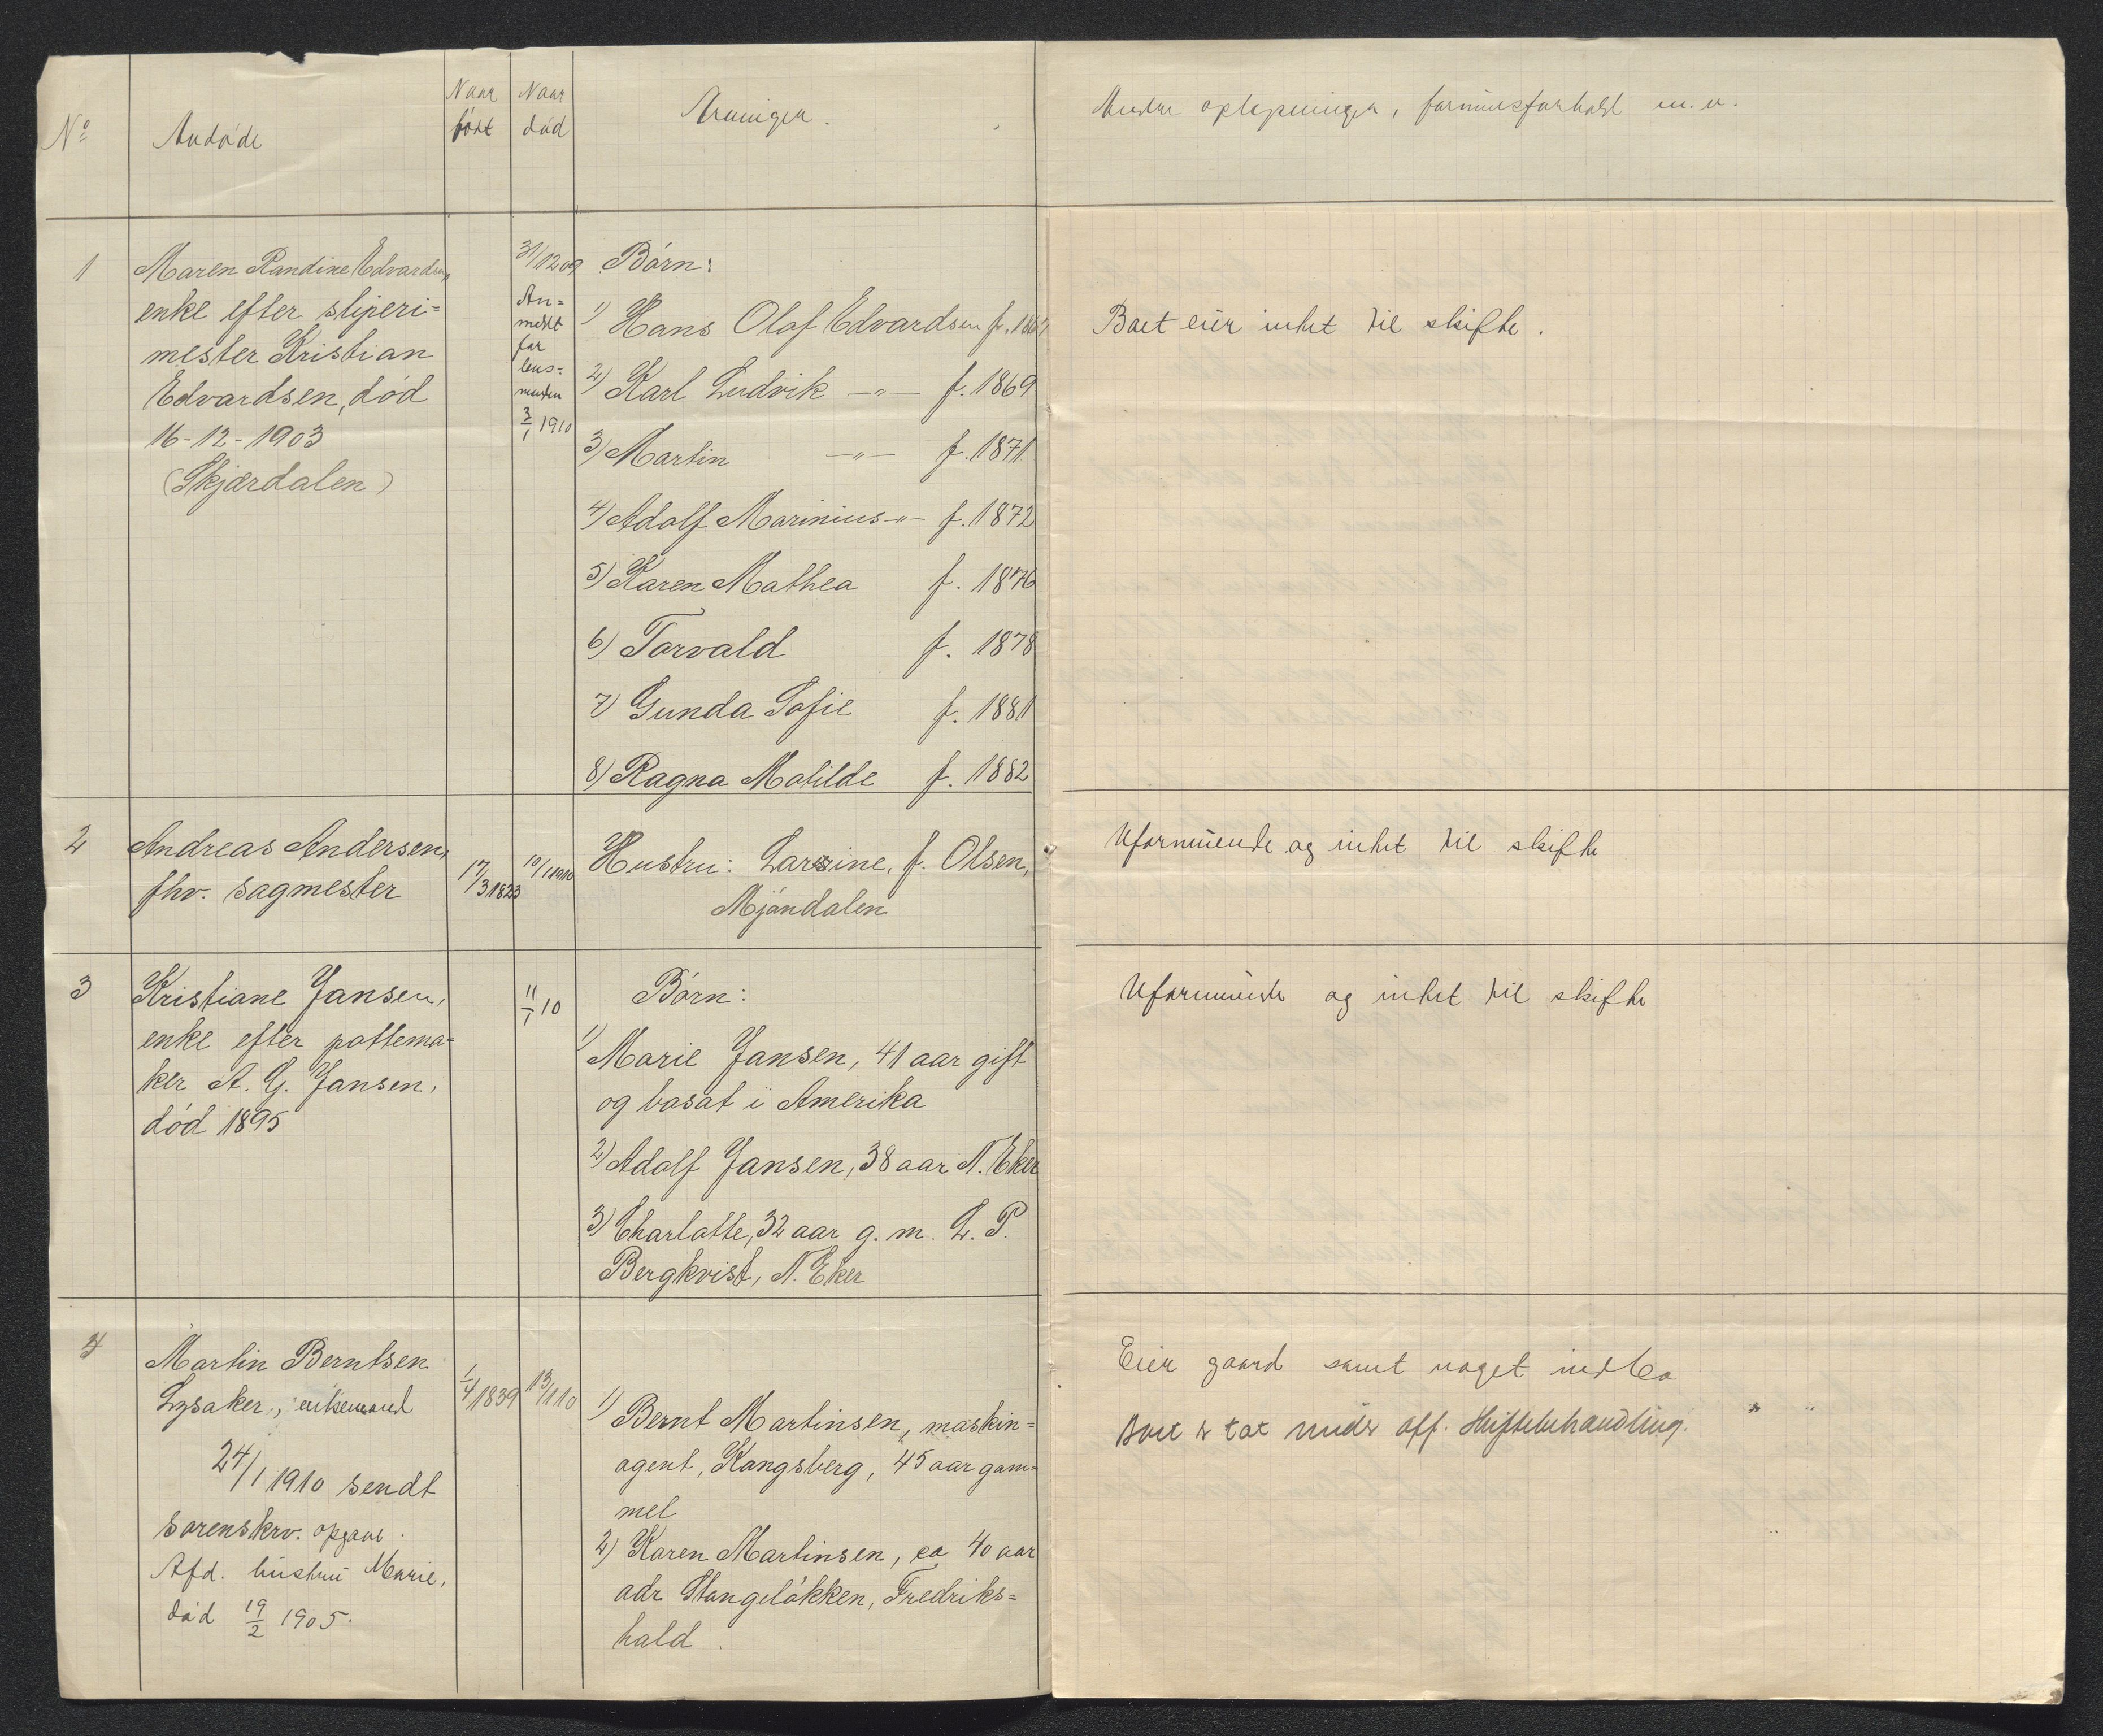 No
Avdøde
Naar født
Naar død
Arvinger.
Andre oplysninger, formuesforhold m.v.
1
Maren Randine Edvardsen,
enke efter sliperi=
mester Kristian
Edvardsen, død
16-12-1903
(Skjærdalen)
31/12 09
An=
meldt
for
lens=
manden
3/1 1910
Børn:
1) Hans Olaf Edvardsen f. 1867
2) Karl Ludvik —"— f. 1869
3) Martin —"— f. 1871
4) Adolf Marinius —"— f. 1872
5) Karen Mathea f. 1876
6) Torvald f. 1878
7) Gunda Sofie f. 1881
8) Ragna Matilde f. 1882
Boet eier intet til skifte.
2
Andreas Andersen,
fhv. sagmester
17/3 1823
10/1 1910
Hustru: Larsine, f. Olsen,
Mjøndalen
Uformuende og intet til skifte
3
Kristiane Jansen,
enke efter pottema=
ker A. G. Jansen,
død 1895
11/1 10
Børn:
1) Marie Jansen, 41 aar gift
og bosat i Amerika
2) Adolf Jansen, 38 aar N. Eker
3) Charlotte, 32 aar g. m. L. P.
Bergkvist, N. Eker
Uformuende og intet til skifte
4
Martin Berntsen
Lysaker, enkemand
24/1 1910 sendt
sorenskrv. opgave.
Afd. hustru Marie,
død 19/2 1905.
1/4 1839
13/1 10
1) Bernt Martinsen, maskin=
agent, Kongsberg, 45 aar gam=
mel
2) Karen Martinsen, ca 40 aar
adr. Stangeløkken, Fredriks=
hald.
Eier gaard samt noget indbo
Boet er tat under off. skiftebehandling.